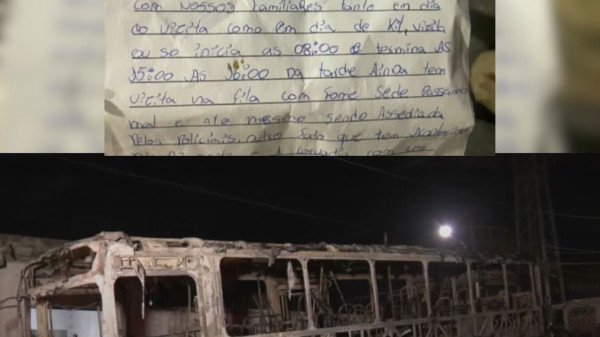 com Nossos Familiares tanto em dia
do vicita como em dia de Kit, vicit
ou se inicia as 08:00 e termina AS
15:00 As 16:00 Da tarde Ainda tem
vicita na fila com fome Sede Passando
mal e até mesmo sendo Assediada
Pelos Policiais, outro fato que tem
com